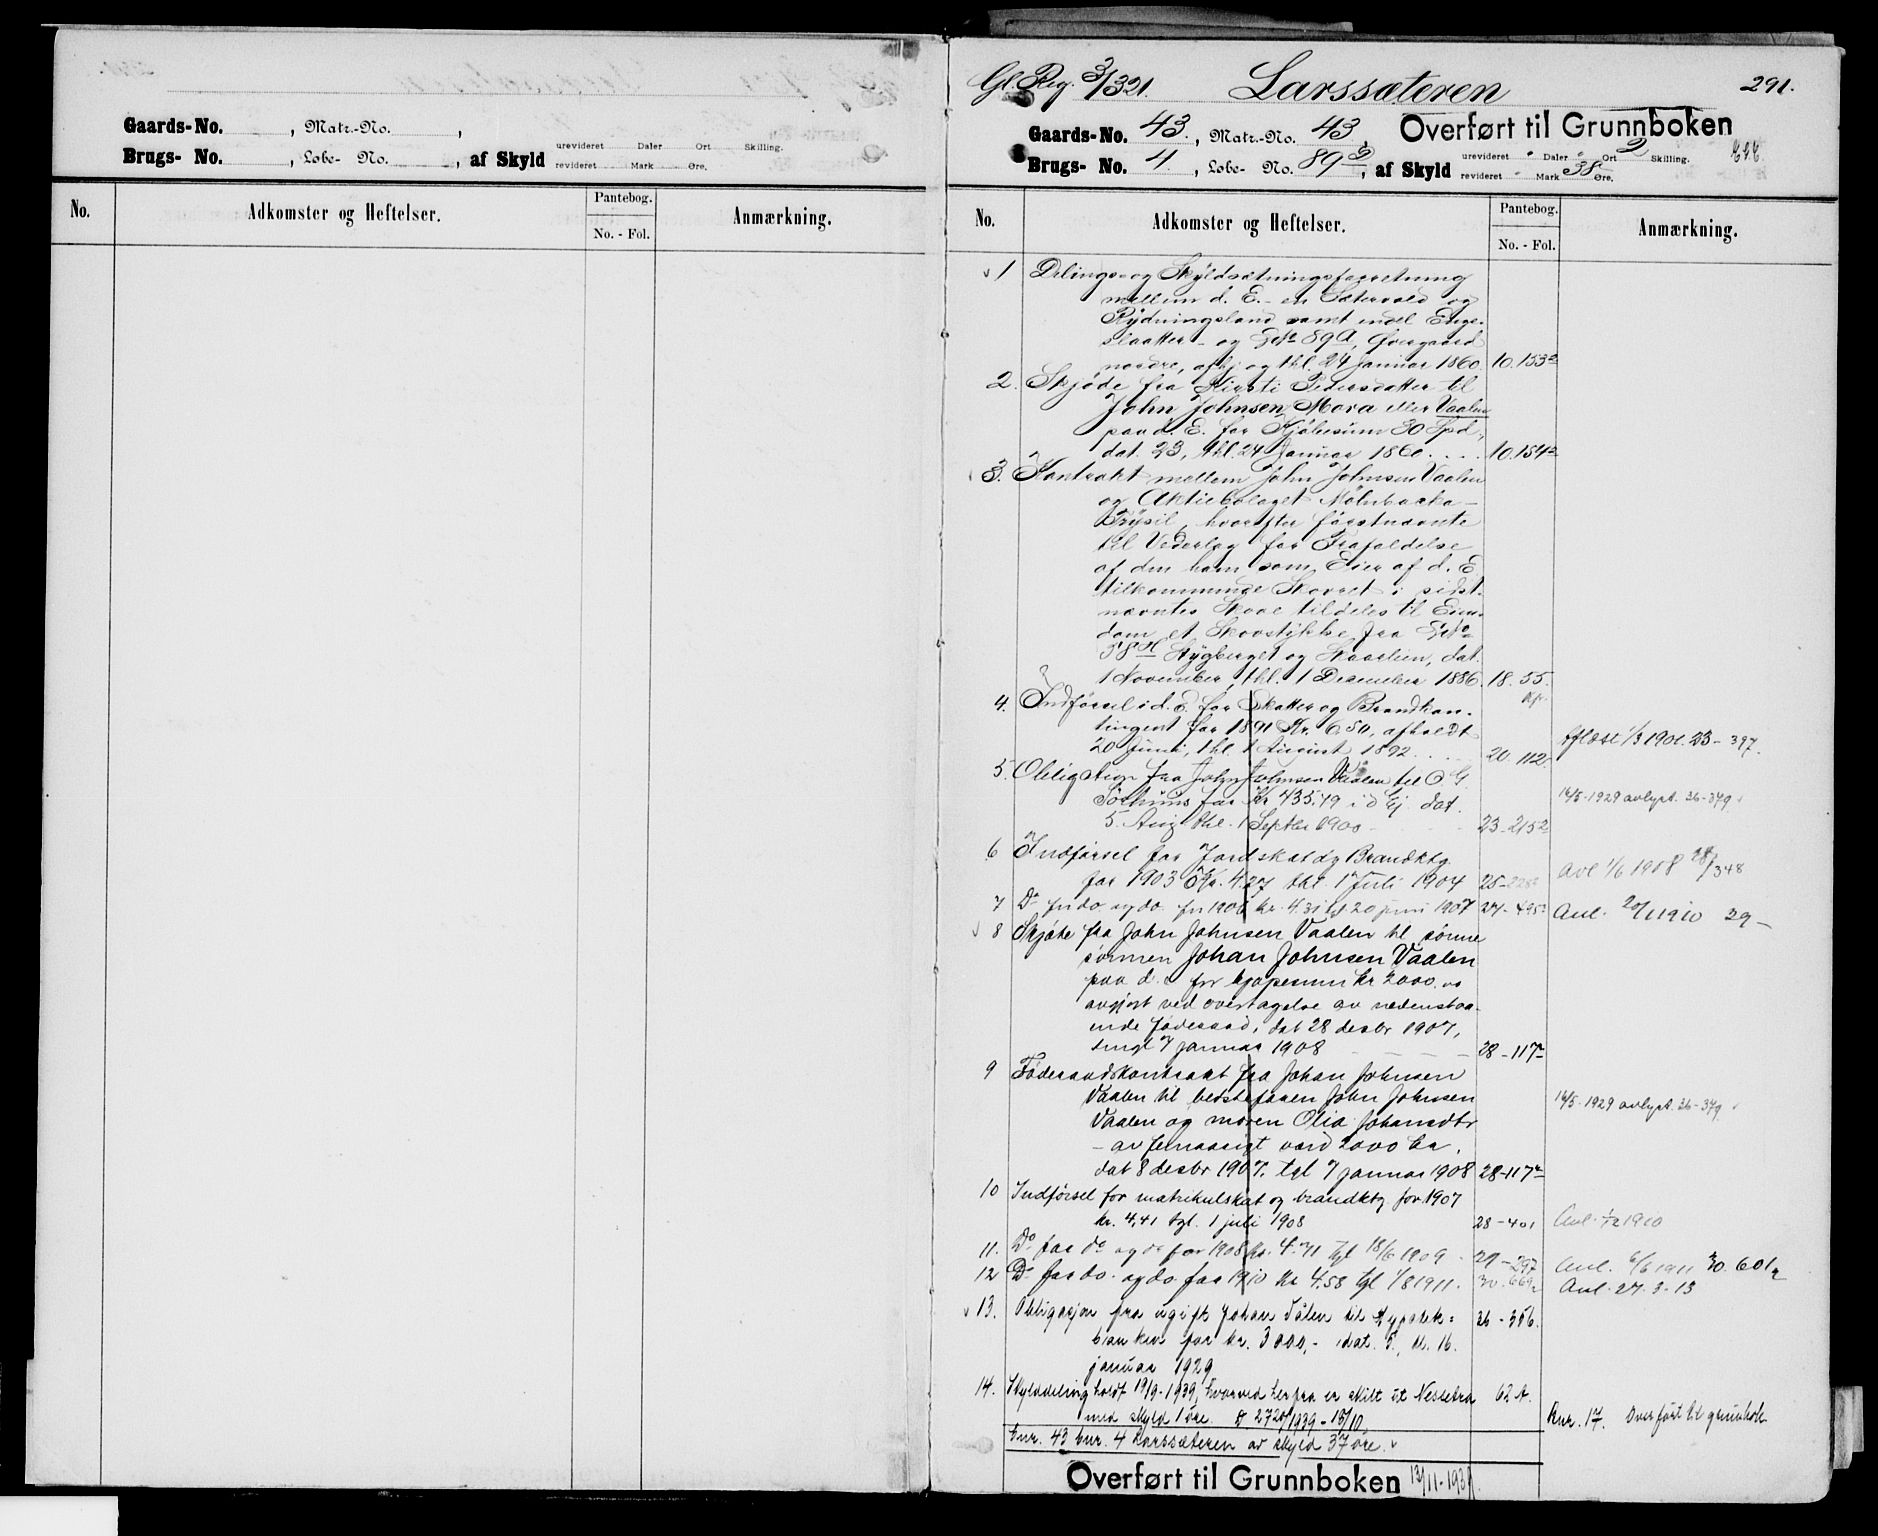 Gaards-No. , Matr.-No. ,
Brugs- No. , Løbe- No. , af Skyld urevideret Daler Ort Skilling.
revideret Mark Øre.
No. Adkomster og Heftelser. Pantebog. No. - Fol. Anmærkning.
Gl. Reg. 3/321. Larssæteren 291.
Gaards-No. 43. , Matr.-No. 43, Overført til Grunnboken
Brugs- No. 4. , Løbe- No. 89 , af Skyld urevideret " Daler " Ort 2 Skilling.
revideret " Mark 38 Øre.
No. Adkomster og Heftelser. Pantebog. No. - Fol. Anmærkning.
1 Delings- og Skyldsætningsforretning
mellem d. E. - en Sætervold og
Rydningsland samt endel Enge-
slaatter - og 89 a, Øvergaard
nordre, afhj. og thl. 24 Januar 1860. 10.153
2. Skjøde fra Kirsti Pedersdatter til
John Johnsen Mora eller Vaalen
paa d. E. for Kjøbesum 30 Spd.,
dat. 23, thl. 24 Januar 1860. . . . 10.154
3. Kontrakt mellem John Johnsen Vaalen
og Aktiebolaget Mölnbacka-
Trysil, hvorefter førstnævnte
til Vederlag for Frafaldelse
af den ham som Eier af d. E.
tilkommende Skovret i sidst-
nævntes Skov tildeles til Eien-
dom et Skovstykke fra
58 Stygberget og Skaarlien, dat.
1 November, thl. 1 December 1886. 18. 55.
4. Indførsel i d. E. for Skatter og Brandkon-
tingent for 1891 Kr. 6.50, afholdt
20 Juni, thl. 1 August 1892. . . . 20. 112. Aflæst 1/3 1901. 23-397.
5. Obligation fra John Johnsen Vaalen til O G.
for Kr 435.49 i d Ej. dat.
5. Aug thl. 1 Septbr 1900 23-215 14/5-1929 avlyst. 36-379
6 Indførsel for Jordskat og Brandktg.
for 1903 Kr. 4.27 thl. 1 Juli 1904 25-228 Avl 1/6 1908 28/348
7 Do for do. og do. for 1906 kr. 4.31 tgl 20 juni 1907 27-495 Avl. 20/1 1910 29-
8 Skjøte fra John Johnsen Vaalen til sønne
sønnen Johan Johnsen Vaalen
paa d. e for kjøpesum kr 2000.00
avgjort ved overtagelse av nedenstaa-
ende føderaad, dat 28 desbr 1907,
tingl 7 januar 1908 28-117
9 Føderaadskontrakt fra Johan Johnsen
Vaalen til bedstefaren John Johnsen
Vaalen og moren Olia Johansdtr
- av femaarigt værd 2000 kr.
dat 8 desbr 1907. tgl 7 januar 1908 28-117 14/5-1929 avlyst. 36-379
10 Indførsel for matrikulskat og brandktg. for 1907
kr. 4,41 tgl. 1 juli 1908 28-401 Avl. 1/2 1910
11. Do for do og do for 1908 kr. 4.71 tgl 18/6 1909 29-297 Avl. 6/6 1911 30.601
12 Do for do. og do. for 1910 Kr 4.58 tgl 1/8 1911. 30.669 Avl. 27.3-13
13. Obligasjon fra ugift Johan Vålen til Hypotek=
banken for kr. 3000,- dat. 5., tl. 16.
januar 1929 36-356.
14. Skylddeling holdt 19/9-1939, hvorved herfra er skilt ut Nessetra 62 A.
med skyld 1 øre. D 2720/1939-15/10. bnr. 17. overført til grunnbok
gnr. 43 bnr. 4 Larssæteren av skyld 37 øre.
Overført til Grunnboken 13/11-193